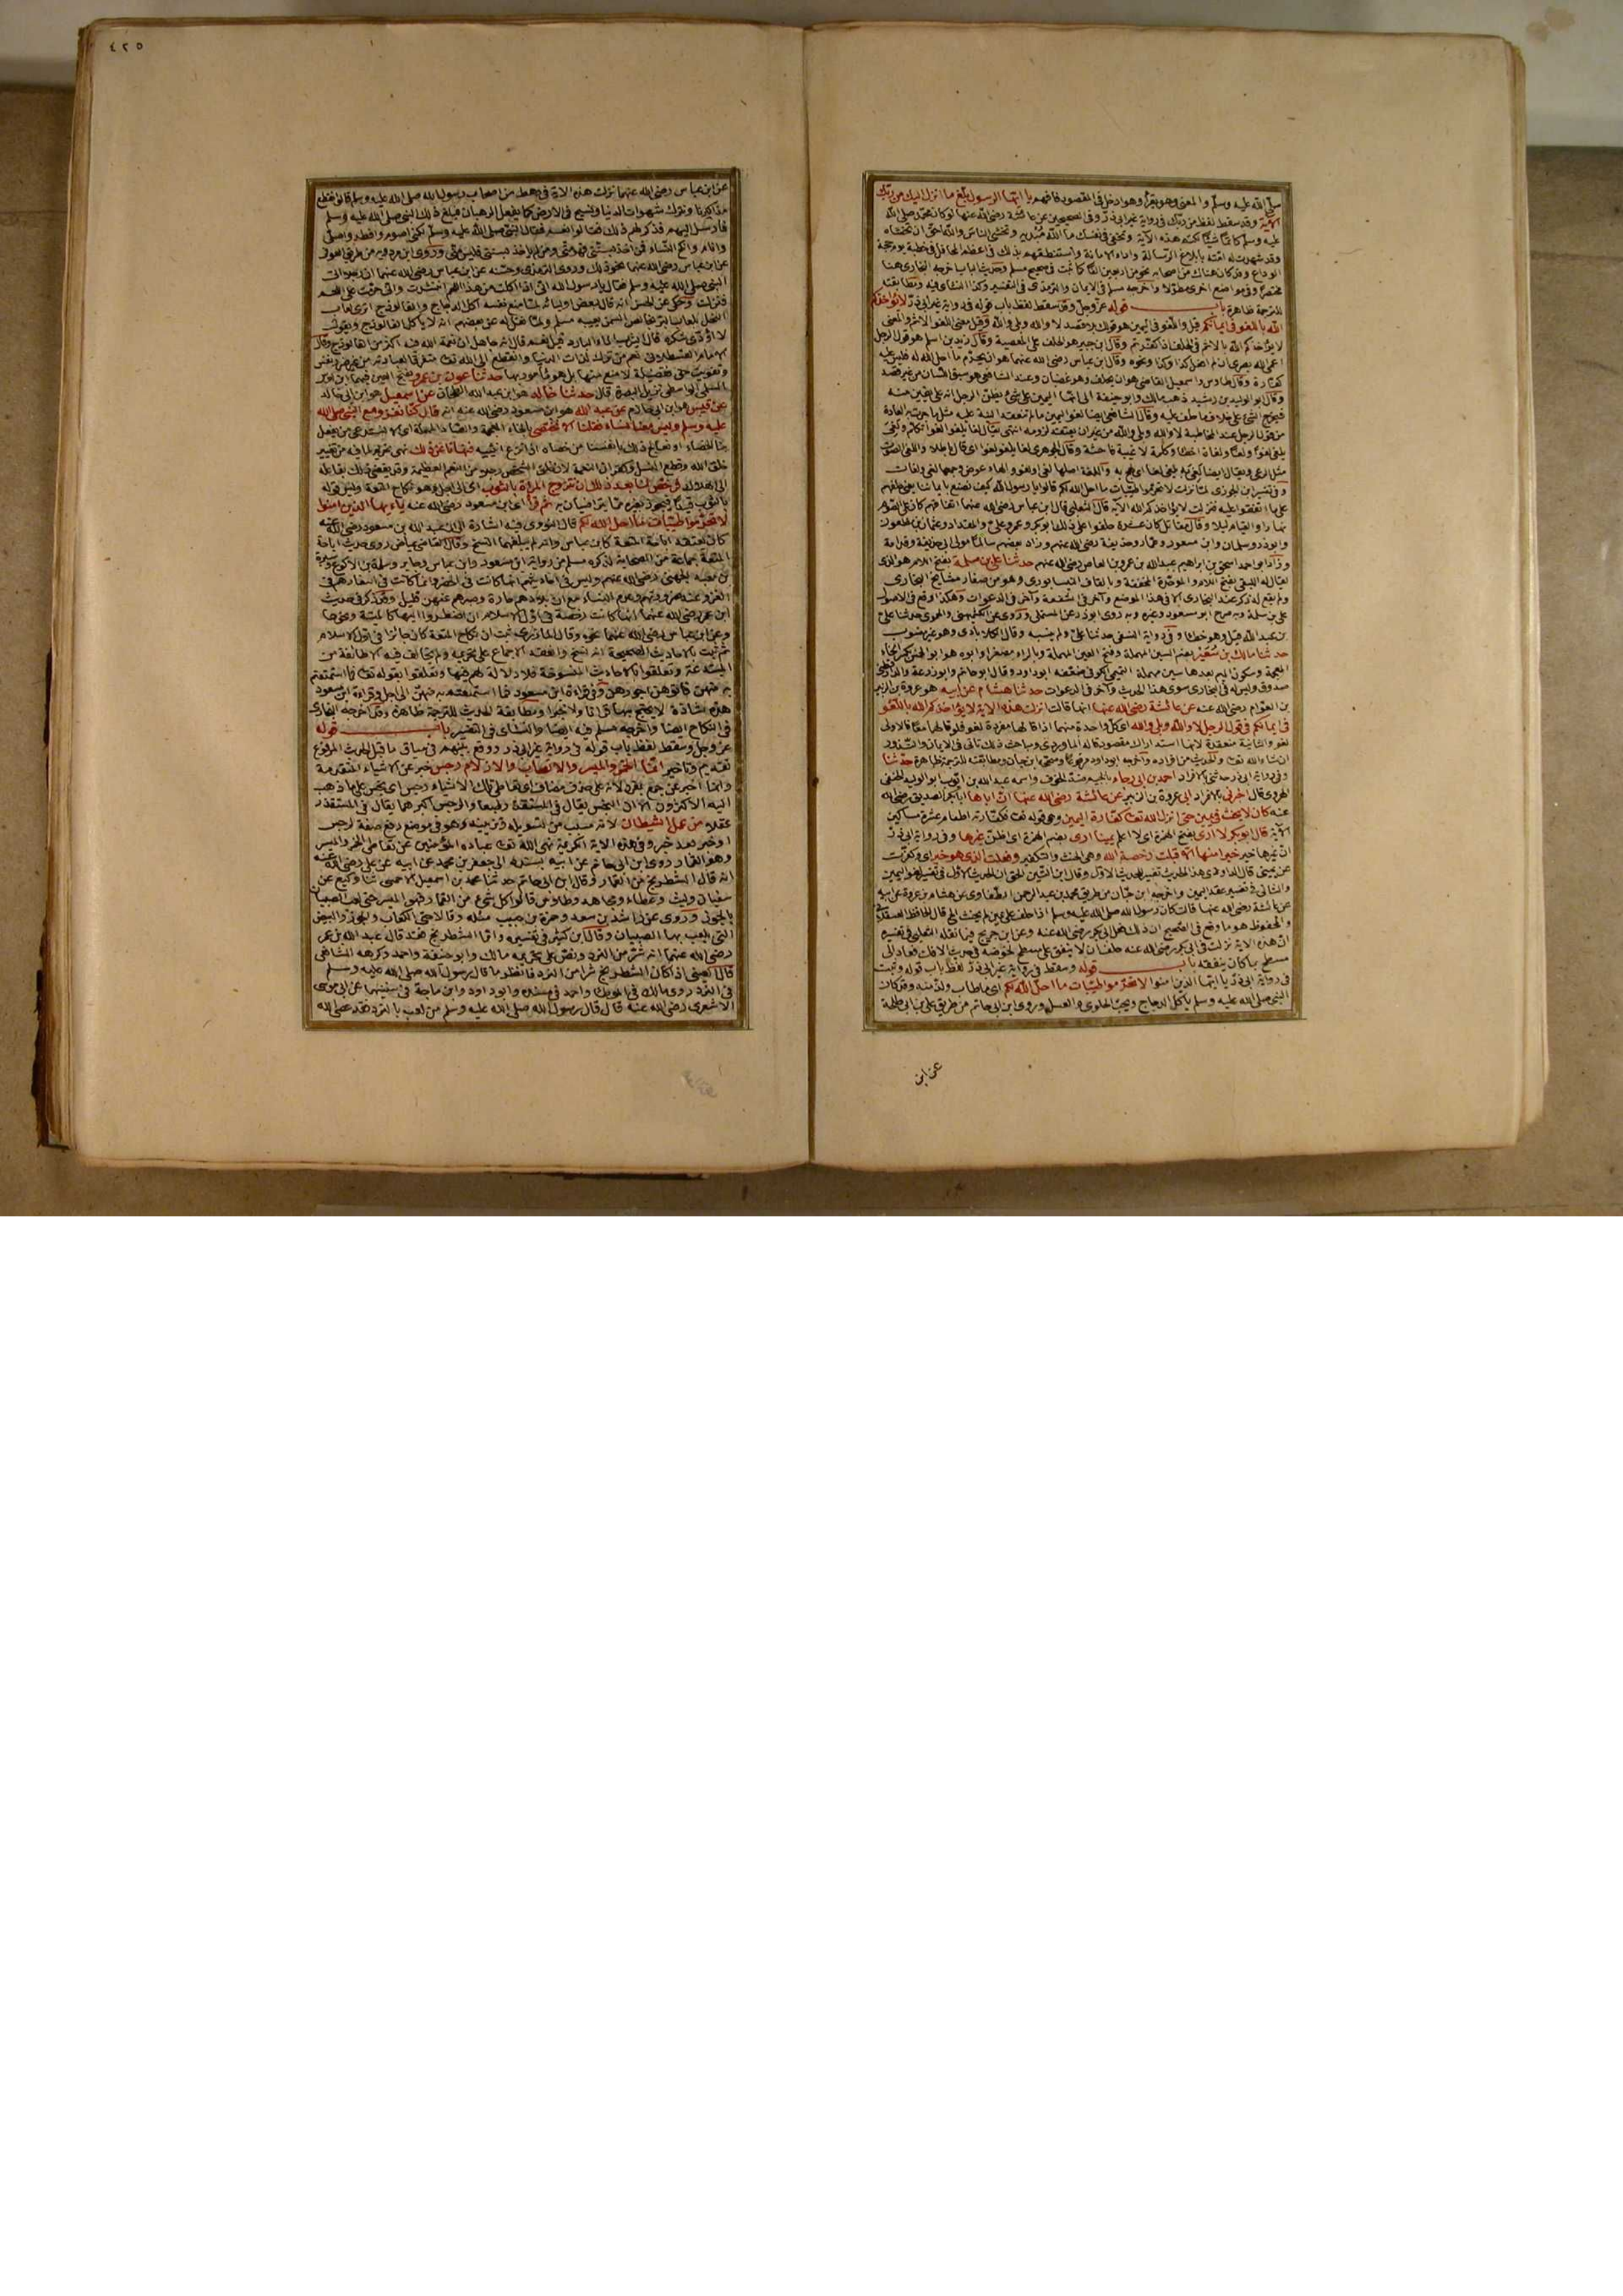 صلى الله عليه وسلم والمعنى وهو يقرأ وهو ادخل في المقصود فافهم يا ايها الرسول بلغ ما انزل اليك من ربك
الآية وقد سقط لفظ من ربك في رواية غير ابي ذر وفي الصحيحين عن عائشة رضي الله عنها لو كان محمد صلى الله
عليه وسلم كاتما شيئا لكتم هذه الآية وتخفي في نفسك ما الله مبديه وتخشى الناس والله احق ان تخشاه
وقد شهدت له امته بابلاغ الرسالة واداء الامانة واستنطقهم بذلك في اعظم المحافل في خطبة يوم حجة
الوداع وقد كان هناك من اصحابه نحو من اربعين الفا كما ثبت في صحيح مسلم وحديث الباب اخرجه البخاري هنا
مختصرا وفي مواضع اخرى مطولا واخرجه مسلم في الايمان والترمذي في التفسير وكذا النسائي فيه ومطابقته
للترجمة ظاهرة باب قوله عز وجل وقد سقط لفظ باب قوله في رواية غير ابي ذر لا يؤاخذكم
الله باللغو في ايمانكم قيل واللغو في اليمين هو قولك بلا قصد لا والله وبلى والله وقيل معنى اللغو الاثم والمعنى
لا يؤاخذكم الله بالاثم في الحلف اذا كفرتم وقال ابن جبير هو الحلف على المعصية وقال زيد بن اسلم هو قول الرجل
اعمى الله بصري ان لم افعل كذا وكذا ونحوه وقال ابن عباس رضي الله عنهما هو ان يحرم ما احل الله له فليس عليه
كفارة وقال طاوس واسمعيل القاضي هو ان يحلف وهو غضبان وعند الشافعي هو سبق اللسان من غير قصد
وقال ابو الوليد بن رشيد ذهب مالك وابو حنيفة الى انها اليمين على شيء يظن الرجل انه على يقين منه
فيخرج الشيء على خلاف ما حلف عليه وقال الشافعي ايضا لغو اليمين ما لم تنعقد النية عليه مثل ما جرت به العادة
وفي تفسير ابن الجوزي لما نزلت لا تحرموا طيبات ما احل الله لكم قالوا يا رسول الله كيف نصنع بايماننا يعني حلفهم
على ما اتفقوا عليه فنزلت لا يؤاخذكم الله الآية قال الثعلبي قال ابن عباس رضي الله عنهما اتفاقهم كان على الصوم
نهارا والقيام ليلا وقال مقاتل كان عشرة حلفوا على ذلك ابو بكر وعمر وعلي والمقداد وعثمان بن مظعون
وابو ذر وسلمان وابن مسعود وعمار وحذيفة رضي الله عنهم وزاد بعضهم سالما مولى ابي حذيفة وقدامة
وزاد ابو احمد اسحق بن ابراهيم عبد الله بن عمرو بن العاص رضي الله عنهم حدثنا علي بن سلمة بفتح اللام هو الذي
يقال له اللبقي بفتح اللام والموحدة المخففة وبالقاف النيسابوري وهو من صغار مشايخ البخاري
ولم يقع له ذكر عند البخاري الا في هذا الموضع وآخر في الشفعة وآخر في الدعوات وهكذا وقع في الاصول
علي بن سلمة وبه صرح ابو مسعود وغيره وبه روى ابو ذر عن المستملي وروى عن الكشميهني والحموي حدثنا علي
بن عبد الله قيل وهو خطأ وفي رواية النسفي حدثنا علي ولم ينسبه وقال الكلاباذي وهو غير منسوب
حدثنا مالك بن سعير بضم السين المهملة وفتح العين المهملة وبالراء مصغرا وابوه هو ابو الخمس بكسر الخاء
المعجمة وسكون الميم بعدها سين مهملة التميمي الكوفي ضعفه ابو داود وقال ابو حاتم وابو زرعة والدارقطني
صدوق وليس له في البخاري سوى هذا الحديث وآخر في الدعوات حدثنا هشام عن ابيه هو عروة بن الزبير
بن العوام رضي الله عنه عن عائشة رضي الله عنها انها قالت انزلت هذه الآية لا يؤاخذكم الله باللغو
في ايمانكم في قول الرجل لا والله وبلى والله اي كل واحدة منهما اذا قالها مفردة لغو فلو قالهما معا فالاولى
لغو والثانية منعقدة لانها استدراك مقصود قاله الماوردي ومباحث ذلك تاتي في الايمان والنذور
ان شاء الله تعالى والحديث من افراده واخرجه ابو داود مرفوعا وصححه ابن حبان ومطابقته للترجمة ظاهرة حدثنا
وفي رواية ابي ذر حدثني بالافراد احمد بن ابي رجاء بالجيم ضد الخوف واسمه عبد الله بن ايوب ابو الوليد الحنفي
الهروي قال اخبرني بالافراد ابي عروة بن الزبير عن عائشة رضي الله عنها ان اباها ابا بكر الصديق رضي الله
عنه كان لا يحنث في يمين حتى انزل الله تعالى كفارة اليمين وهي قوله تعالى فكفارته اطعام عشرة مساكين
الآية قال ابو بكر لا ارى بفتح الهمزة اي لا اعلم يمينا ارى بضم الهمزة اي اظن غيرها وفي رواية ابي ذر
ان غيرها خيرا منها الا قبلت رخصة الله وهي الحنث والتكفير وفعلت الذي هو خير اي وكفرت
عن يميني قال الداودي هذا الحديث تفسير الحديث الاول وقال ابن التين الحق ان الحديث الاول في تفسير لغو اليمين
والثاني في تفسير عقد اليمين واخرجه ابن حبان من طريق محمد بن عبد الرحمن الطفاوي عن هشام بن عروة عن ابيه
عن عائشة رضي الله عنها قالت كان رسول الله صلى الله عليه وسلم اذا حلف على يمين لم يحنث الخ قال الحافظ العسقلاني
والمحفوظ هو ما وقع في الصحيح ان ذلك فعل ابي بكر رضي الله عنه وعن ابن جريج فيما نقله الثعلبي في تفسيره
ان هذه الآية نزلت في ابي بكر رضي الله عنه حلف ان لا ينفق على مسطح لخوضه في حديث الافك فعاد الى
مسطح بما كان ينفقه باب قوله وسقط في رواية غير ابي ذر لفظ باب قوله وثبت
في رواية ابي ذر يا ايها الذين امنوا لا تحرموا طيبات ما احل الله لكم اي ما طاب ولذ منه وقد كان
النبي صلى الله عليه وسلم ياكل الدجاج ويحب الحلوى والعسل وروى ابن ابي حاتم من طريق علي بن ابي طلحة
عن ابن
٤٢٥
عن ابن عباس رضي الله عنهما نزلت هذه الاية في رهط من اصحاب رسول الله صلى الله عليه وسلم قالوا نقطع
مذاكيرنا ونترك شهوات الدنيا ونسيح في الارض كما يفعل الرهبان فبلغ ذلك النبي صلى الله عليه وسلم
فارسل اليهم فذكر لهم ذلك فقالوا نعم فقال النبي صلى الله عليه وسلم لكني اصوم وافطر واصلي
وانام وانكح النساء فمن اخذ بسنتي فهو مني ومن لم ياخذ بسنتي فليس مني وروى ابن مردويه من طريق العوفي
عن ابن عباس رضي الله عنهما نحو ذلك وروى الترمذي وحسنه عن ابن عباس رضي الله عنهما ان رجلا اتى
النبي صلى الله عليه وسلم فقال يا رسول الله اني اذا اكلت من هذا اللحم انتشرت واني حرمت علي اللحم
فنزلت وحكي عن الحسن انه قال لبعض اوليائه لما منع نفسه اكل الدجاج والفالوذج اترى لعاب
النحل بلعاب البر بخالص السمن يعيبه مسلم ولما نقل له عن بعضهم انه لا ياكل الفالوذج ويقول
لا اؤدي شكره قال ايشرب الماء البارد قيل نعم قال انه جاهل ان نعمة الله فيه اكثر من الفالوذج وقال
حدثنا عمرو بن عون بفتح العين فيهما ابن اوس
السلمي الواسطي نزيل البصرة قال حدثنا خالد هو ابن عبد الله الطحان عن اسمعيل هو ابن ابي خالد
عن قيس هو ابن ابي حازم عن عبد الله هو ابن مسعود رضي الله عنه انه قال كنا نغزو مع النبي صلى الله
عليه وسلم وليس معنا نساء فقلنا الا نختصي بالخاء المعجمة والصاد المهملة اي الا نستدعي من يفعل
بنا الخصاء او نعالج ذلك بانفسنا من خصاه اذا نزع انثييه فنهانا عن ذلك نهي تحريم لما فيه من تغيير
خلق الله وقطع النسل وكفران النعمة لان خلق الشخص رجلا من النعم العظيمة وقد يفضي ذلك بفاعله
الى الهلاك فرخص لنا بعد ذلك ان نتزوج المرأة بالثوب اي الى اجل وهو نكاح المتعة وليس قوله
بالثوب قيدا فيجوز بغيره مما يتراضيان به ثم قرأ اي ابن مسعود رضي الله عنه يا ايها الذين امنوا
لا تحرموا طيبات ما احل الله لكم قال النووي فيه اشارة الى ان عبد الله بن مسعود رضي الله عنه
كان يعتقد اباحة المتعة كابن عباس وانه لم يبلغهما النسخ وقال القاضي عياض روى حديث اباحة
المتعة جماعة من الصحابة فذكره مسلم من رواية ابن مسعود وابن عباس وجابر وسلمة بن الاكوع وسبرة
بن معبد الجهني رضي الله عنهم وليس في احاديثهم انها كانت في الحضر وانما كانت في اسفارهم في
الغزو عند ضرورتهم وعدم النساء مع ان بلادهم حارة وصبرهم عنهن قليل وقد ذكر في حديث
ابن عمر رضي الله عنهما انها كانت رخصة في اول الاسلام لمن اضطر اليها كالميتة ونحوها
وعن ابن عباس رضي الله عنهما نحوه وقال المازري ثبت ان نكاح المتعة كان جائزا في اول الاسلام
ثم ثبت بالاحاديث الصحيحة انه نسخ وانعقد الاجماع على تحريمه ولم يخالف فيه الا طائفة من
المبتدعة وتعلقوا بالاحاديث المنسوخة فلا دلالة لهم فيها وتعلقوا بقوله تعالى فما استمتعتم
به منهن فاتوهن اجورهن وفي قراءة ابن مسعود فما استمتعتم به منهن الى اجل وقراءة ابن مسعود
هذه شاذة لا يحتج بها قرانا ولا خبرا ومطابقة الحديث للترجمة ظاهرة وقد اخرجه البخاري
في النكاح ايضا واخرجه مسلم فيه ايضا والنسائي في التفسير باب قوله
عز وجل وسقط لفظ باب قوله في رواية غير ابي ذر ووقع بينهم في سياق ما قبل الحديث المرفوع
تقديم وتاخير انما الخمر والميسر والانصاب والازلام رجس خبر عن الاشياء المتقدمة
وانما اخبر عن جمع بمفرد لانه على حذف مضاف اي تعاطي تلك الاشياء رجس اي نجس على ما ذهب
اليه الاكثرون الا ان النجس يقال في المستقذر طبعا والرجس اكثر ما يقال في المستقذر
عقلا من عمل الشيطان لانه مسبب من تسويله وتزيينه وهو في موضع رفع صفة لرجس
او خبر بعد خبر وفي هذه الاية الكريمة نهى الله تعالى عباده المؤمنين عن تعاطي الخمر والميسر
وهو القمار روى ابن ابي حاتم عن ابيه بسنده الى جعفر بن محمد عن ابيه عن علي رضي الله عنه
انه قال الشطرنج من القمار وقال ابن ابي حاتم حدثنا محمد بن اسمعيل الاحمسي ثنا وكيع عن
سفيان وليث وعطاء ومجاهد وطاوس قالوا كل شيء من القمار فهو الميسر حتى لعب الصبيان
بالجوز وروى عن راشد بن سعد وحمزة بن حبيب مثله وقالا حتى الكعاب والجوز والبيض
التي يلعب بها الصبيان وقال ابن كثير في تفسيره واما الشطرنج فقد قال عبد الله بن عمر
رضي الله عنهما انه شر من النرد ونص على تحريمه مالك وابو حنيفة واحمد وكرهه الشافعي
قال العيني اذا كان الشطرنج شرا من النرد فانظر ما قال رسول الله صلى الله عليه وسلم
في النرد روى مالك في الموطأ واحمد في مسنده وابو داود وابن ماجة في سننيهما عن ابي موسى
الاشعري رضي الله عنه قال قال رسول الله صلى الله عليه وسلم من لعب بالنرد فقد عصى الله